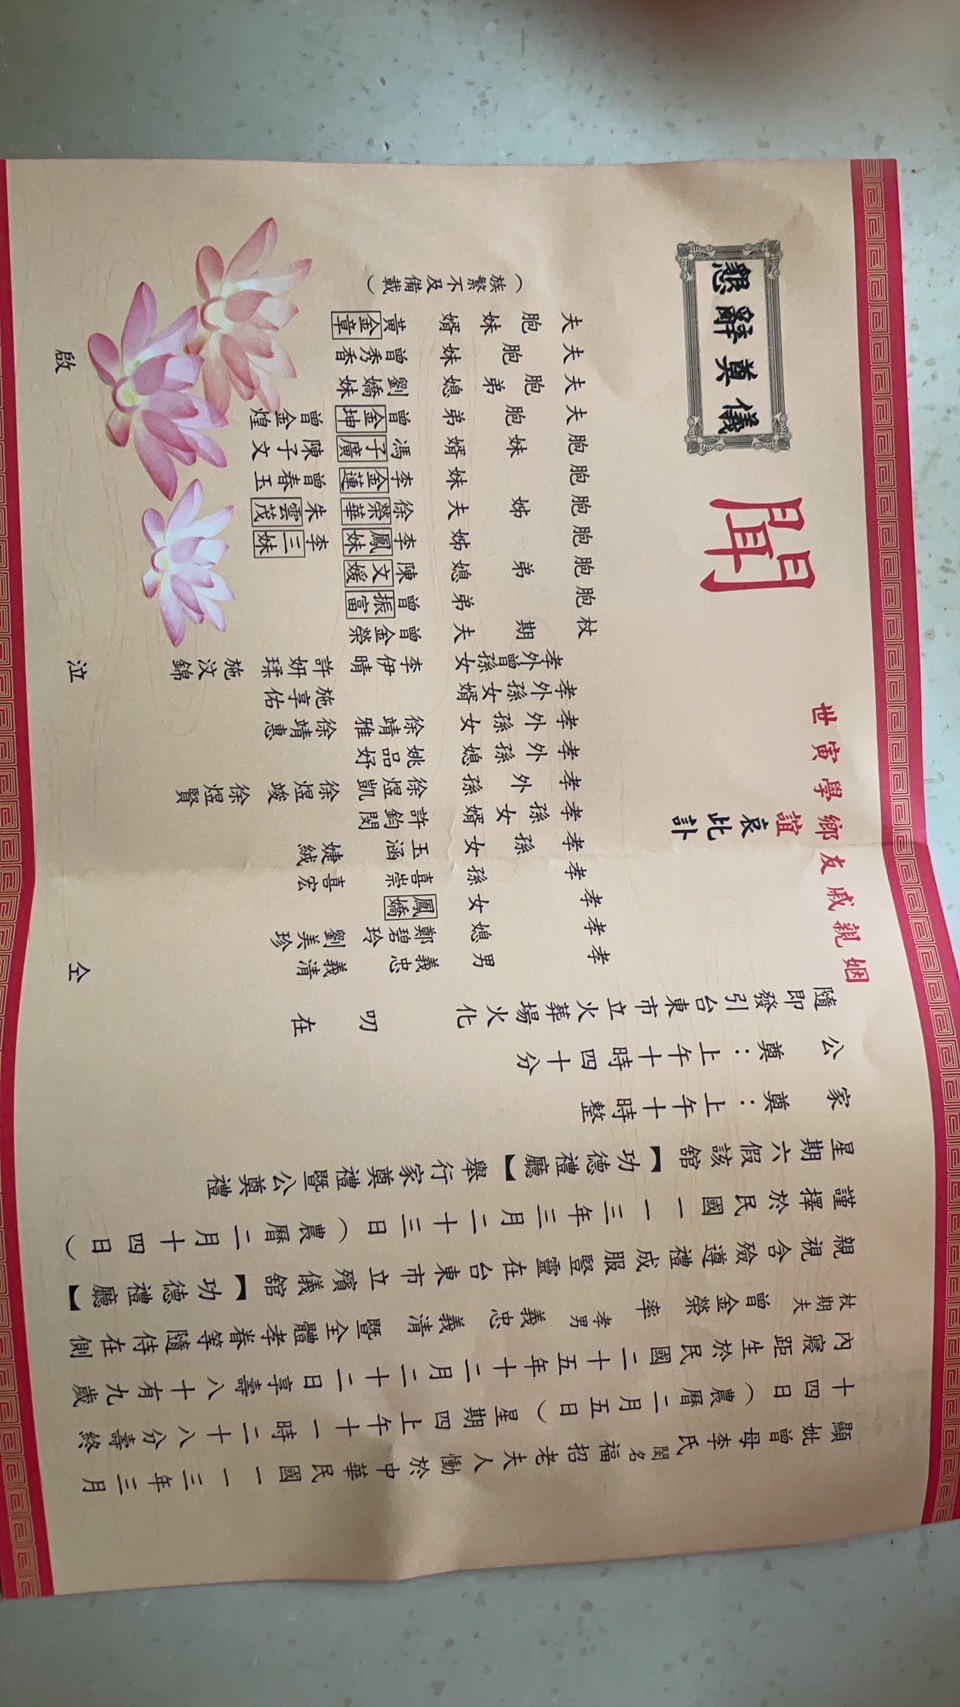 顯妣曾母李氏閨名福招老夫人慟於中華民國一一三年三月
十四日（農曆二月五日）星期四上午十一時二十八分壽終
內寢距生於民國二十五年十二月二十二日享壽八十有九歲
杖期夫曾金榮率孝男義忠義清暨全體孝眷等隨侍在側
親視含殮遵禮成服豎靈在台東市立殯儀館【功德禮廳】
謹擇於民國一一三年三月二十三日（農曆二月十四日）
星期六假該館【功德禮廳】舉行家奠禮暨公奠禮
家奠：上午十時整
公奠：上午十時四十分
隨即發引台東市立火葬場火化叨在
姻親戚友鄉學寅世
誼哀此訃
聞
懇辭奠儀
孝男 義忠 義清 仝
孝媳 鄭碧玲 劉美珍
孝女 鳳嬌
孝孫 喜崇 喜宏
孝孫女 玉涵 婕絨
孝孫女婿 許鈞閔
孝外孫 徐煜凱 徐煜竣 徐煜賢
孝外孫媳 姚品妤
孝外孫女 徐靖雅 徐靖惠
孝外孫女婿 施享佑
孝外曾孫女 李伊晴 許妍 施汶錦 泣
杖期夫 曾金榮
胞弟 曾振富
胞弟媳 陳文媛
胞姊 李鳳妹 李三妹
胞姊夫 徐榮華 朱雲茂
胞妹 李金蓮 曾春玉
胞妹婿 馮子廣 陳子文
夫胞弟 曾金坤 曾金煌
夫胞弟媳 劉嬌妹
夫胞妹 曾秀香 啟
夫胞妹婿 黃金章
（族繁不及備載）